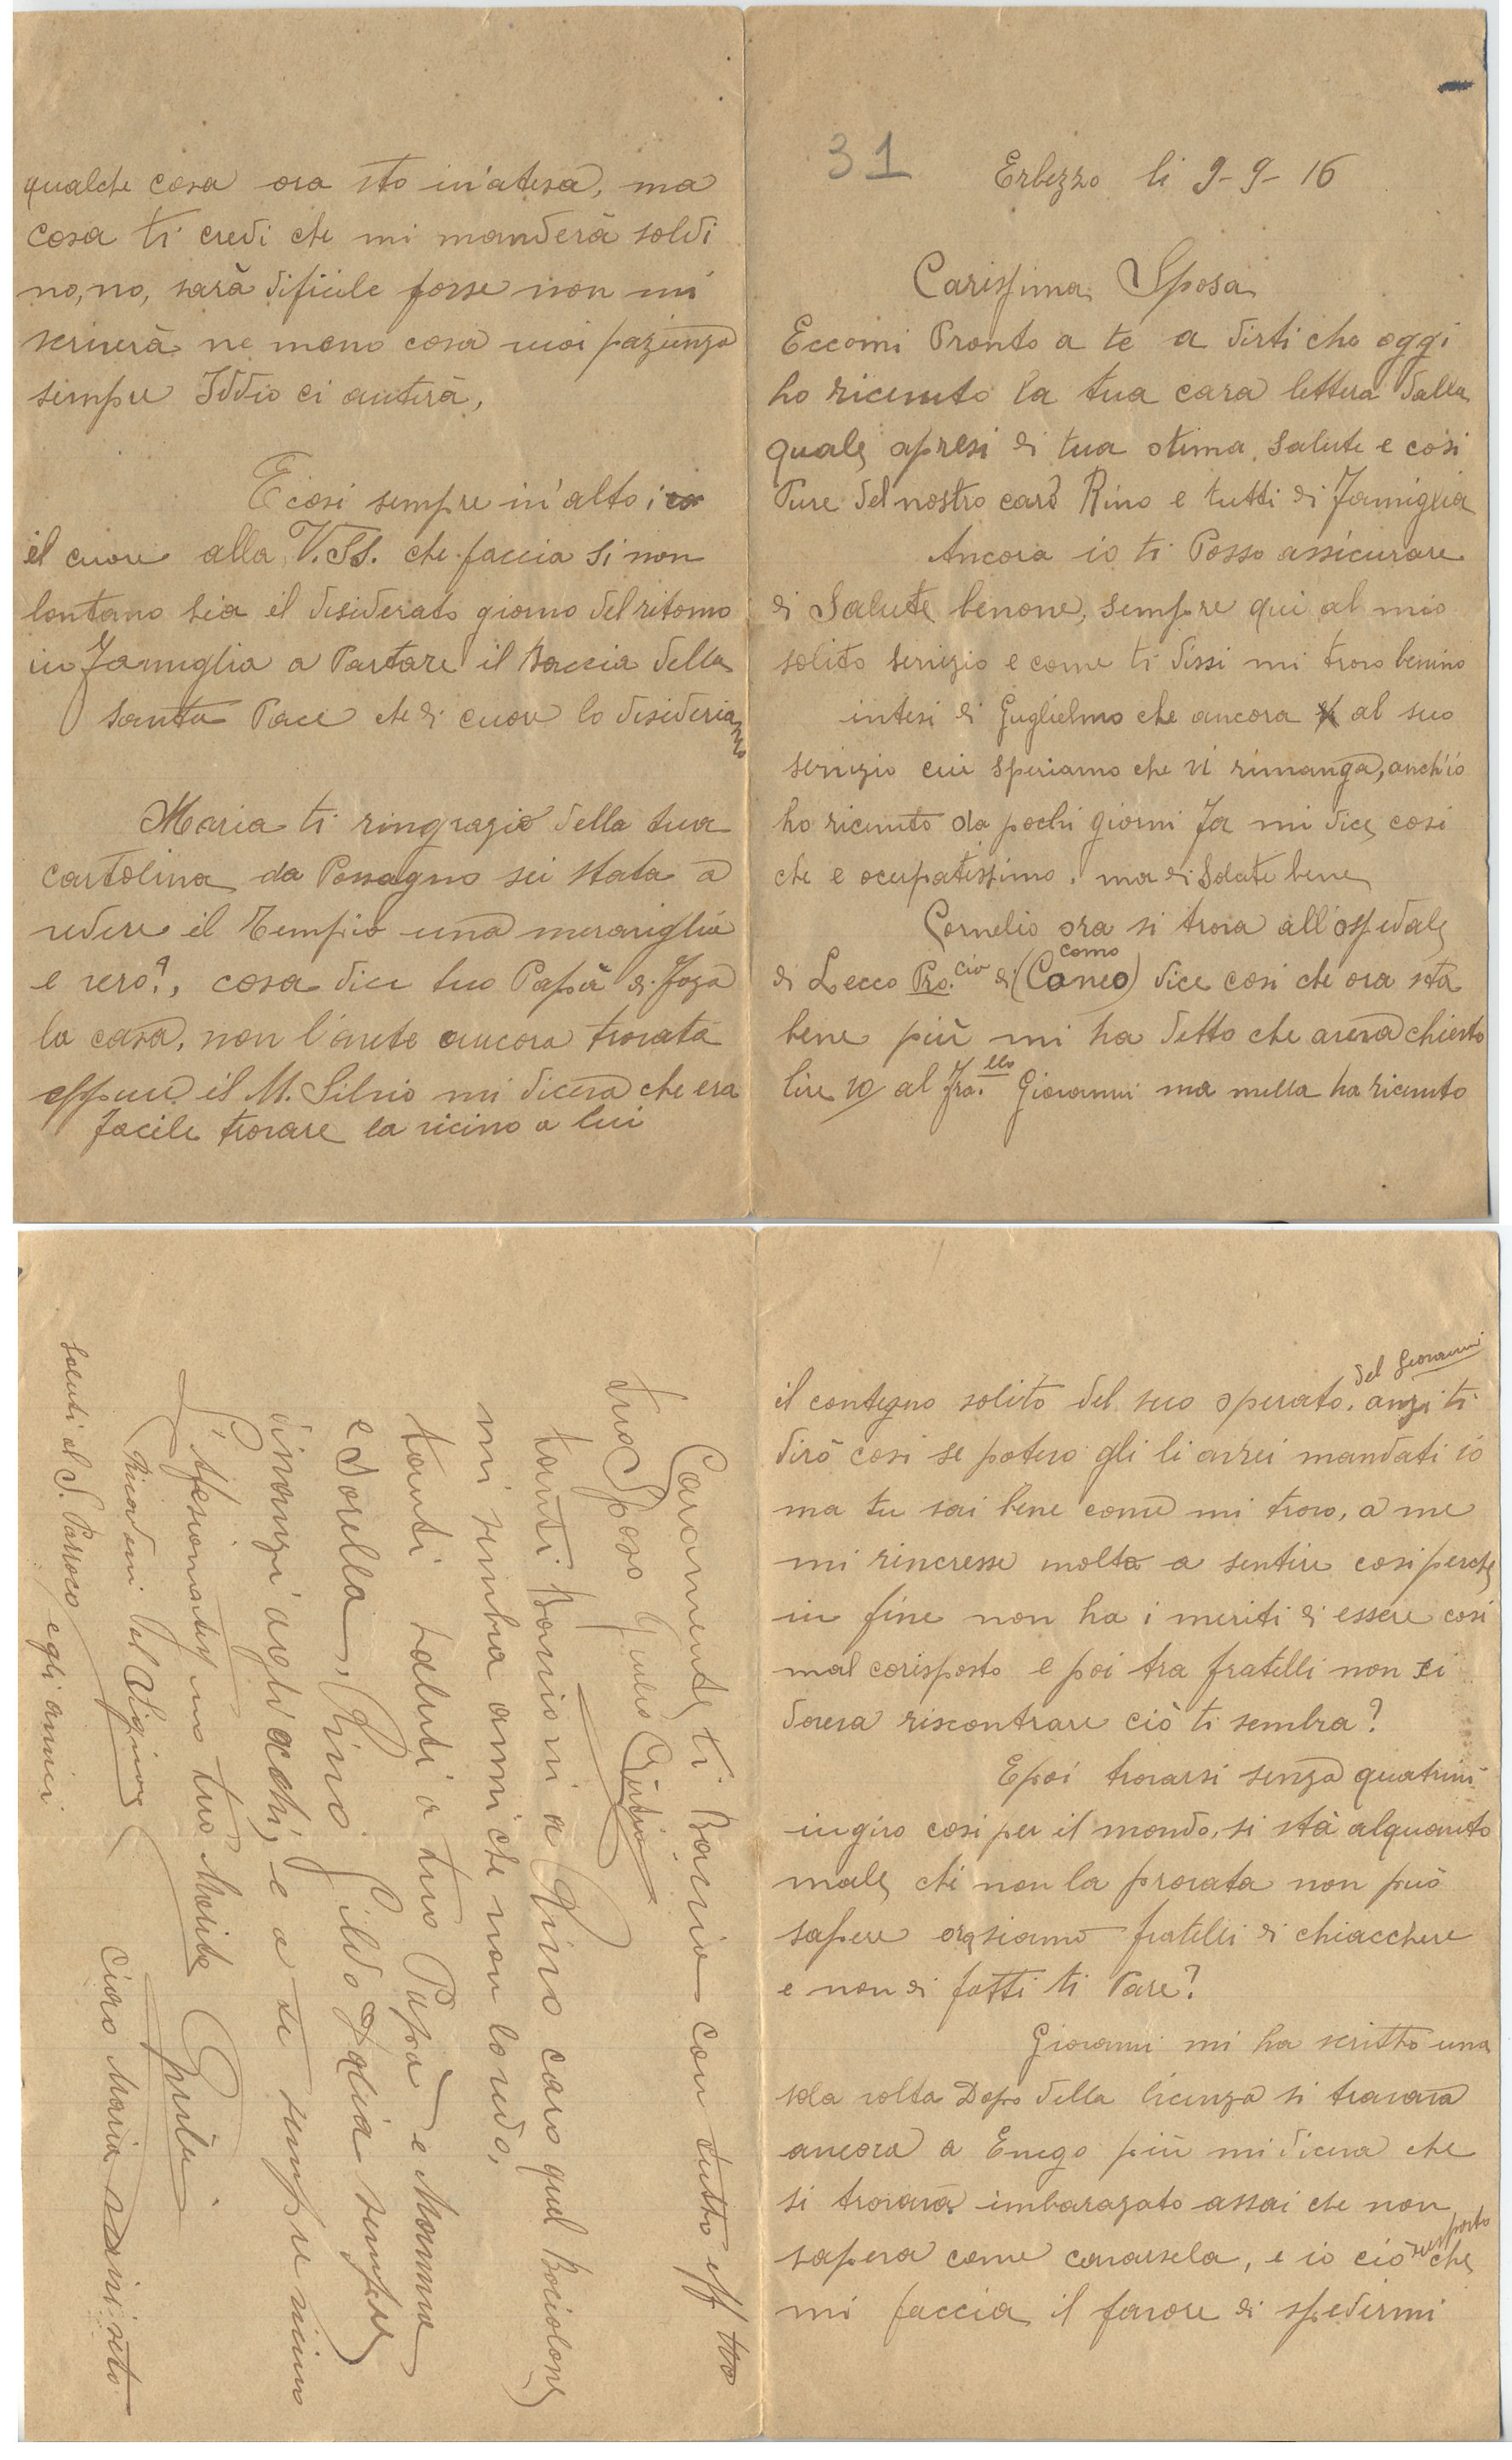 31
Erbezzo li 9-9-16
Carissima Sposa
Eccomi Pronto a te a dirti che oggi
ho ricevuto la tua cara lettera dalla
quale apresi di tua otima salute e così
Pure del nostro caro Rino e tutti di Famiglia
Ancora io ti Posso assicurare
di Salute benone, sempre qui al mio
solito servizio e come ti dissi mi trovo benino
intesi di Guglielmo che ancora al suo
servizio cui speriamo che vi rimanga, anch'io
ho ricevuto da pochi giorni Fa mi dice cosi
che e ocupatissimo, ma di Salute bene
Cornelio ora si trova all'ospedale
di Lecco Pro.cio di (Como) dice cosi che ora stà
bene più mi ha detto che aveva chiesto
lire 10 al Fra.llo Giovanni ma nulla ha ricevuto
il contegno solito del suo operato. del Giovanni anzi ti
dirò cosi se potevo gli li avrei mandati io
ma tu sai bene come mi trovo, a me
mi rincresse molto a sentire cosi perche
in fine non ha i meriti di essere cosi
mal corisposto e poi tra fratelli non si
doveva riscontrare ciò ti sembra?
E poi trovarsi senza quatrini
in giro cosi per il mondo, si stà alquanto
male chi non la provata non può
sapere ora siamo fratelli di chiacchere
e non di fatti ti Pare?
Giovanni mi ha scritto una
sola volta Dopo della licenza si trovava
ancora a Enego più mi diceva che
si trovava imbarazato assai che non
sapeva come cavarsela, e io ciò risposto che
mi faccia il favore di spedirmi
qualche cosa ora sto in'atesa, ma
cosa ti credi che mi manderà soldi
no, no, sarà dificile forse non mi
scriverà ne meno cosa vuoi pazienza
sempre Iddio ci auterà,
E cosi sempre in'alto i
il cuore alla V.SS. che faccia si non
lontano sia il disiderato giorno del ritorno
in Famiglia a Portare il Baccia della
santa Pace che di cuore lo disideriamo
Maria ti ringrazio della tua
cartolina da Possagno sei stata a
vedere il Tempio una meraviglia
e vero?, cosa dice tuo Papà di Foza
la casa, non l'avete ancora trovata
eppure il M. Silvio mi diceva che era
facile trovare la vicino a lui
Caramente ti Bacio con tutto eff tuo
tuo Sposo Giulio
tanti Bacioni a Rino caro quel Bociolone
mi sembra anni che non lo vedo,
tanti saluti a tuo Papà e Mamma
e Sorella, Rino Gildo Iolia sempre
innanzi agli ochi, e a te sempre vicino
L'afesionatis mo tuo Marito
Ricordami bel Signore
Ciavo Maria
Saluti al S. Parroco e gli amici